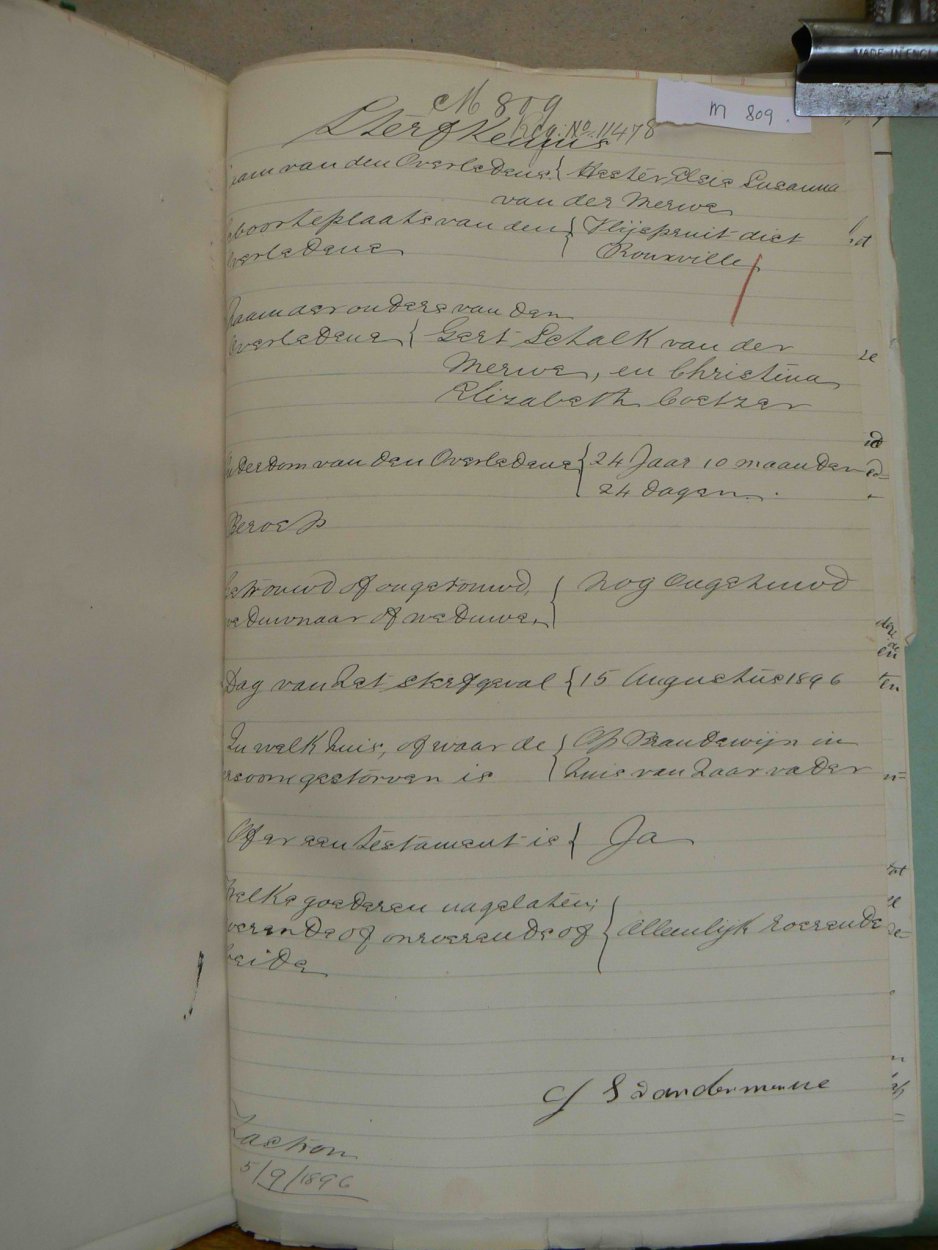 M 809
M 809.
Reg. No. 11478
Sterfkennis
Naam van den Overledene { Hester Elsie Susanna
van der Merwe
Geboorteplaats van den { Vlijspruit dist
Overledene Rouxville
Naam der ouders van den
Overledene { Gert Schalk van der
Merwe, en Christina
Elizabeth Coetzer
Ouderdom van den Overledene { 24 Jaar 10 maanden
24 dagen.
Beroep
Getrouwd of ongetrouwd, { Nog Ongehuwd
weduwnaar of weduwe,
Dag van het sterfgeval { 15 Augustus 1896
In welk huis, of waar de { Op Brandewijn in
persoon gestorven is huis van haar vader
Of er een testament is { Ja
Welke goederen nagelaten;
roerende of onroerende of { Alleenlijk roerende
beide
G S vandermerwe
Zastron
5/9/1896
MADE IN ENGL